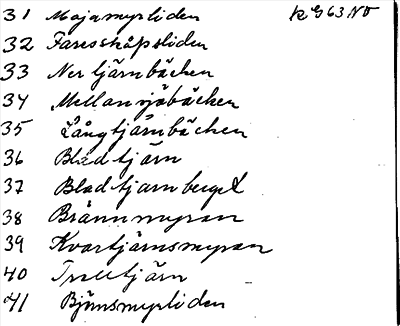 31 Majamyrliden K G 63 NO
32 Faresskåpsliden
33 Nertjärnbäcken
34 Mellansjöbäcken
35 Långtjärnbäcken
36 Bladtjärn
37 Bladtjarnberget
38 Brännmyran
39 Kvartjärnsmyran
40 Trolltjärn
41 Björnsmyrliden